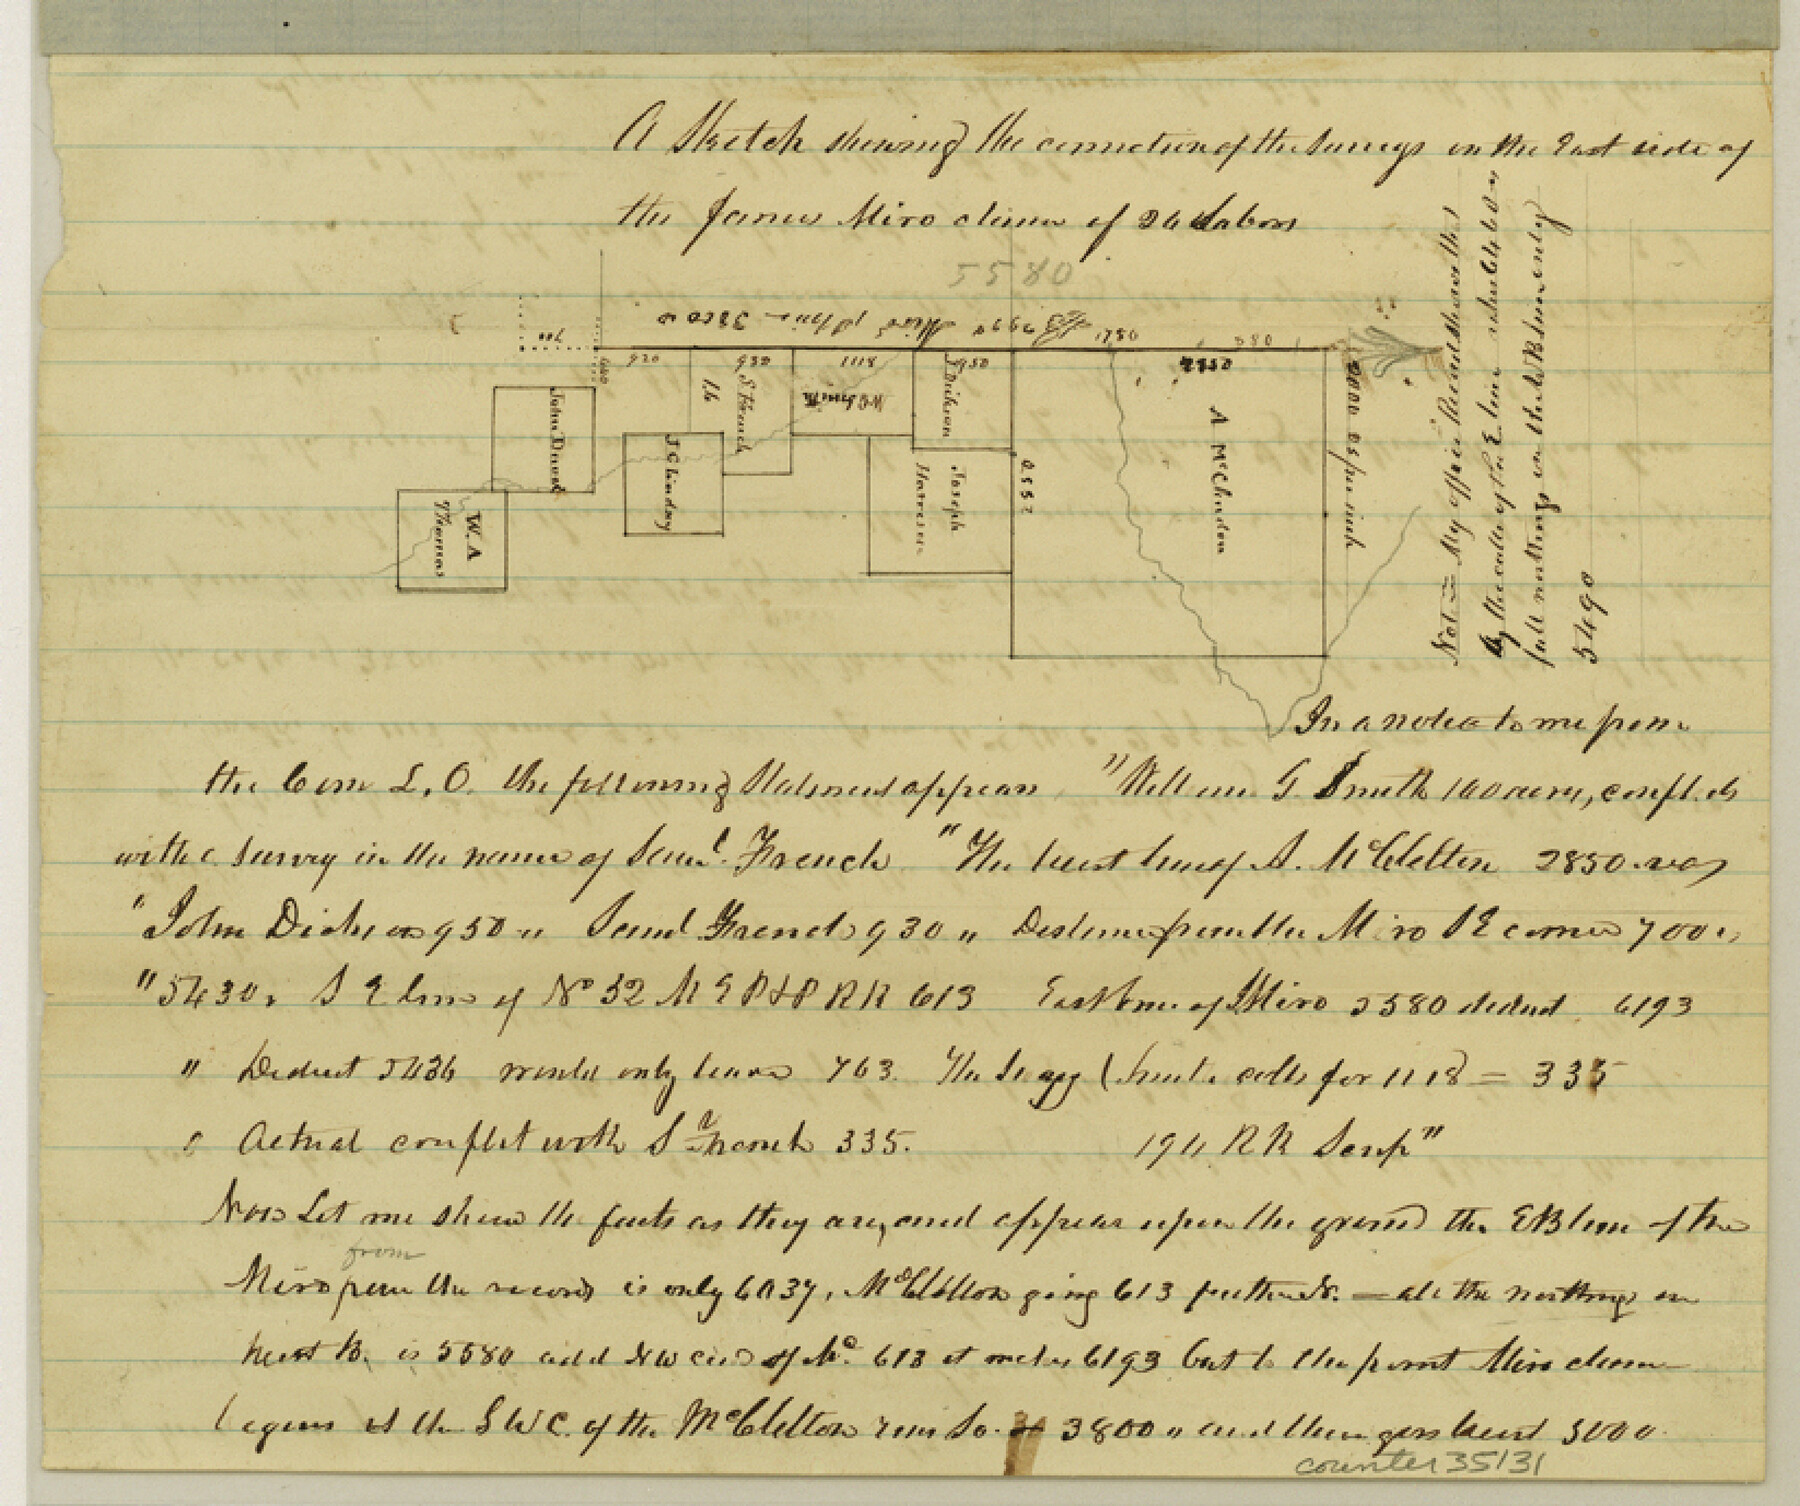 A Sketch showing the connection of the Surveys on the East side of
the James Miro claim of 26 Labors
5580
Miro 3800
700
620
930
1118
950
580
2000 Vs
John Duval
W. A
Thomas
J C Lindsay
16
S French
W G Smith
J Dickson
Joseph
Harrison
2550
A McClendon
Not = My office Record shows that
By the calls of the E line
full northing on the W B
5490
In a notice to me from
the Com L. O. the following Statement appears "William G Smith 160 acres, conflicts
with a survey in the name of Saml. French "The West line of A. McClelton 2850 vas
"John Dickson 950 " Saml French 930 " Distance from the Miro S E corner 700 "
"5430, S E line of No 32 M E P & P R R 613 East line of Miro 5580 6193
" Deduct 5436 would only leave 763. The Wm G Smith calls for 1118 = 335
" Actual conflict with S French 335. 1911 R R Scrip"
Now Let me show the facts as they are, and appear upon the ground the E B line of the
from
Miro from the record is only 6037, McClelton going 613 further N. — all the northing on
West B. is 5580 add N W cor of Mc. 613 it makes 6193 but to the point Miro claim
begins at the S W C. of the McClelton runs So. 3800 " and then goes West 5000
counter 35131